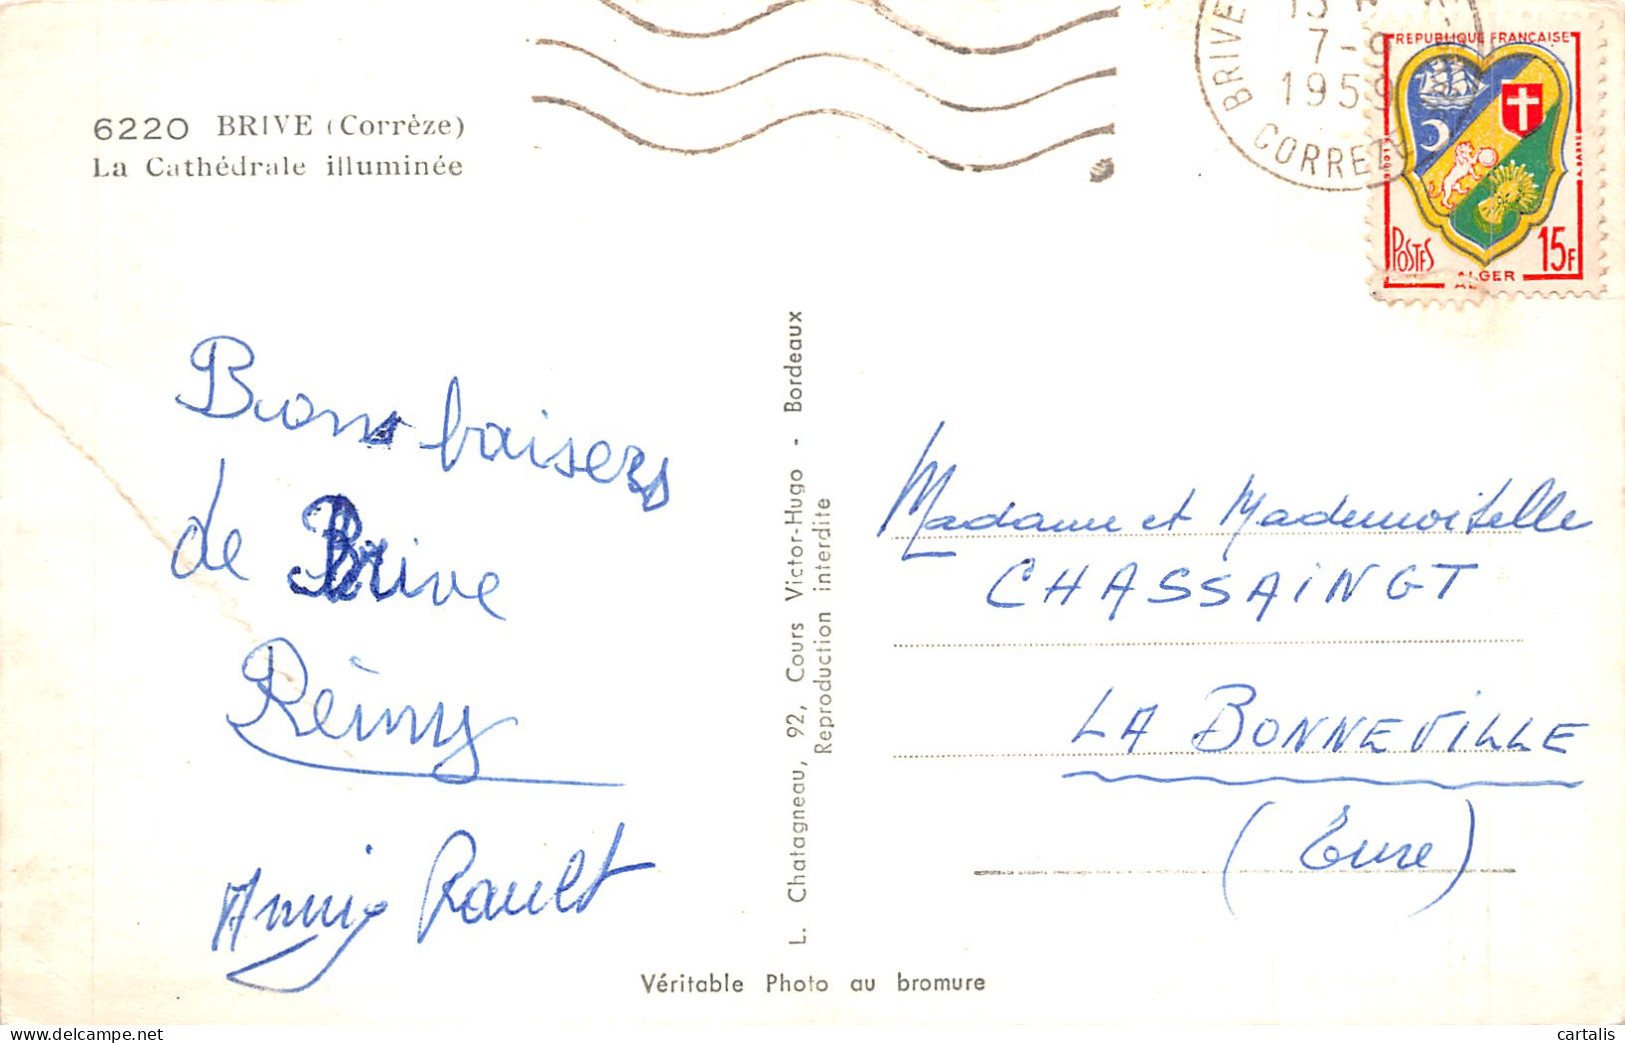 6220 BRIVE (Corrèze)
La Cathédrale illuminée
BRIVE
7-9
1959
CORREZE
REPUBLIQUE FRANÇAISE
POSTES
15F
ALGER
Bons baisers
de Brive
Rémy
Annie Rault
L. Chatagneau, 92, Cours Victor-Hugo - Bordeaux
Reproduction interdite
Madame et Mademoiselle
CHASSAINGT
LA BONNEVILLE
(Eure)
Véritable Photo au bromure
cartalis